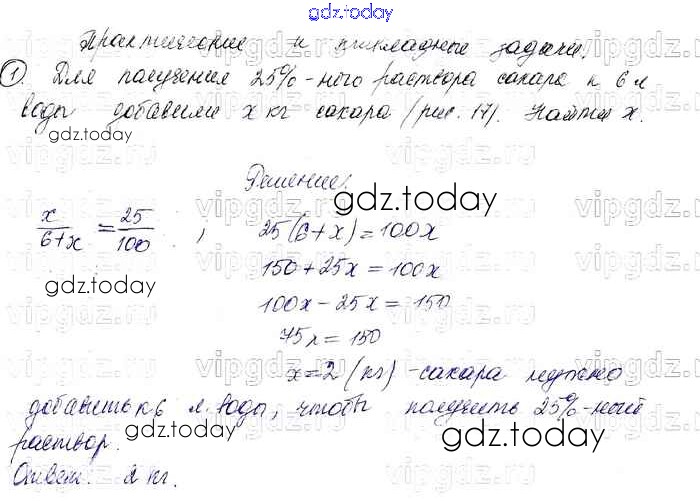 gdz.today
Практические и прикладные задачи.
1. Для получения 25%-ного раствора сахара к 6 л
воды добавили x кг сахара (рис. 17). Найти x.
gdz.today
Решение:
gdz.today
x/(6+x) = 25/100 ; 25(6+x)=100x
150+25x=100x
gdz.today
100x-25x=150
75x=150
x=2 (кг) -сахара нужно
добавить к 6 л воды, чтобы получить 25%-ный
gdz.today
gdz.today
раствор.
Ответ: 2 кг.